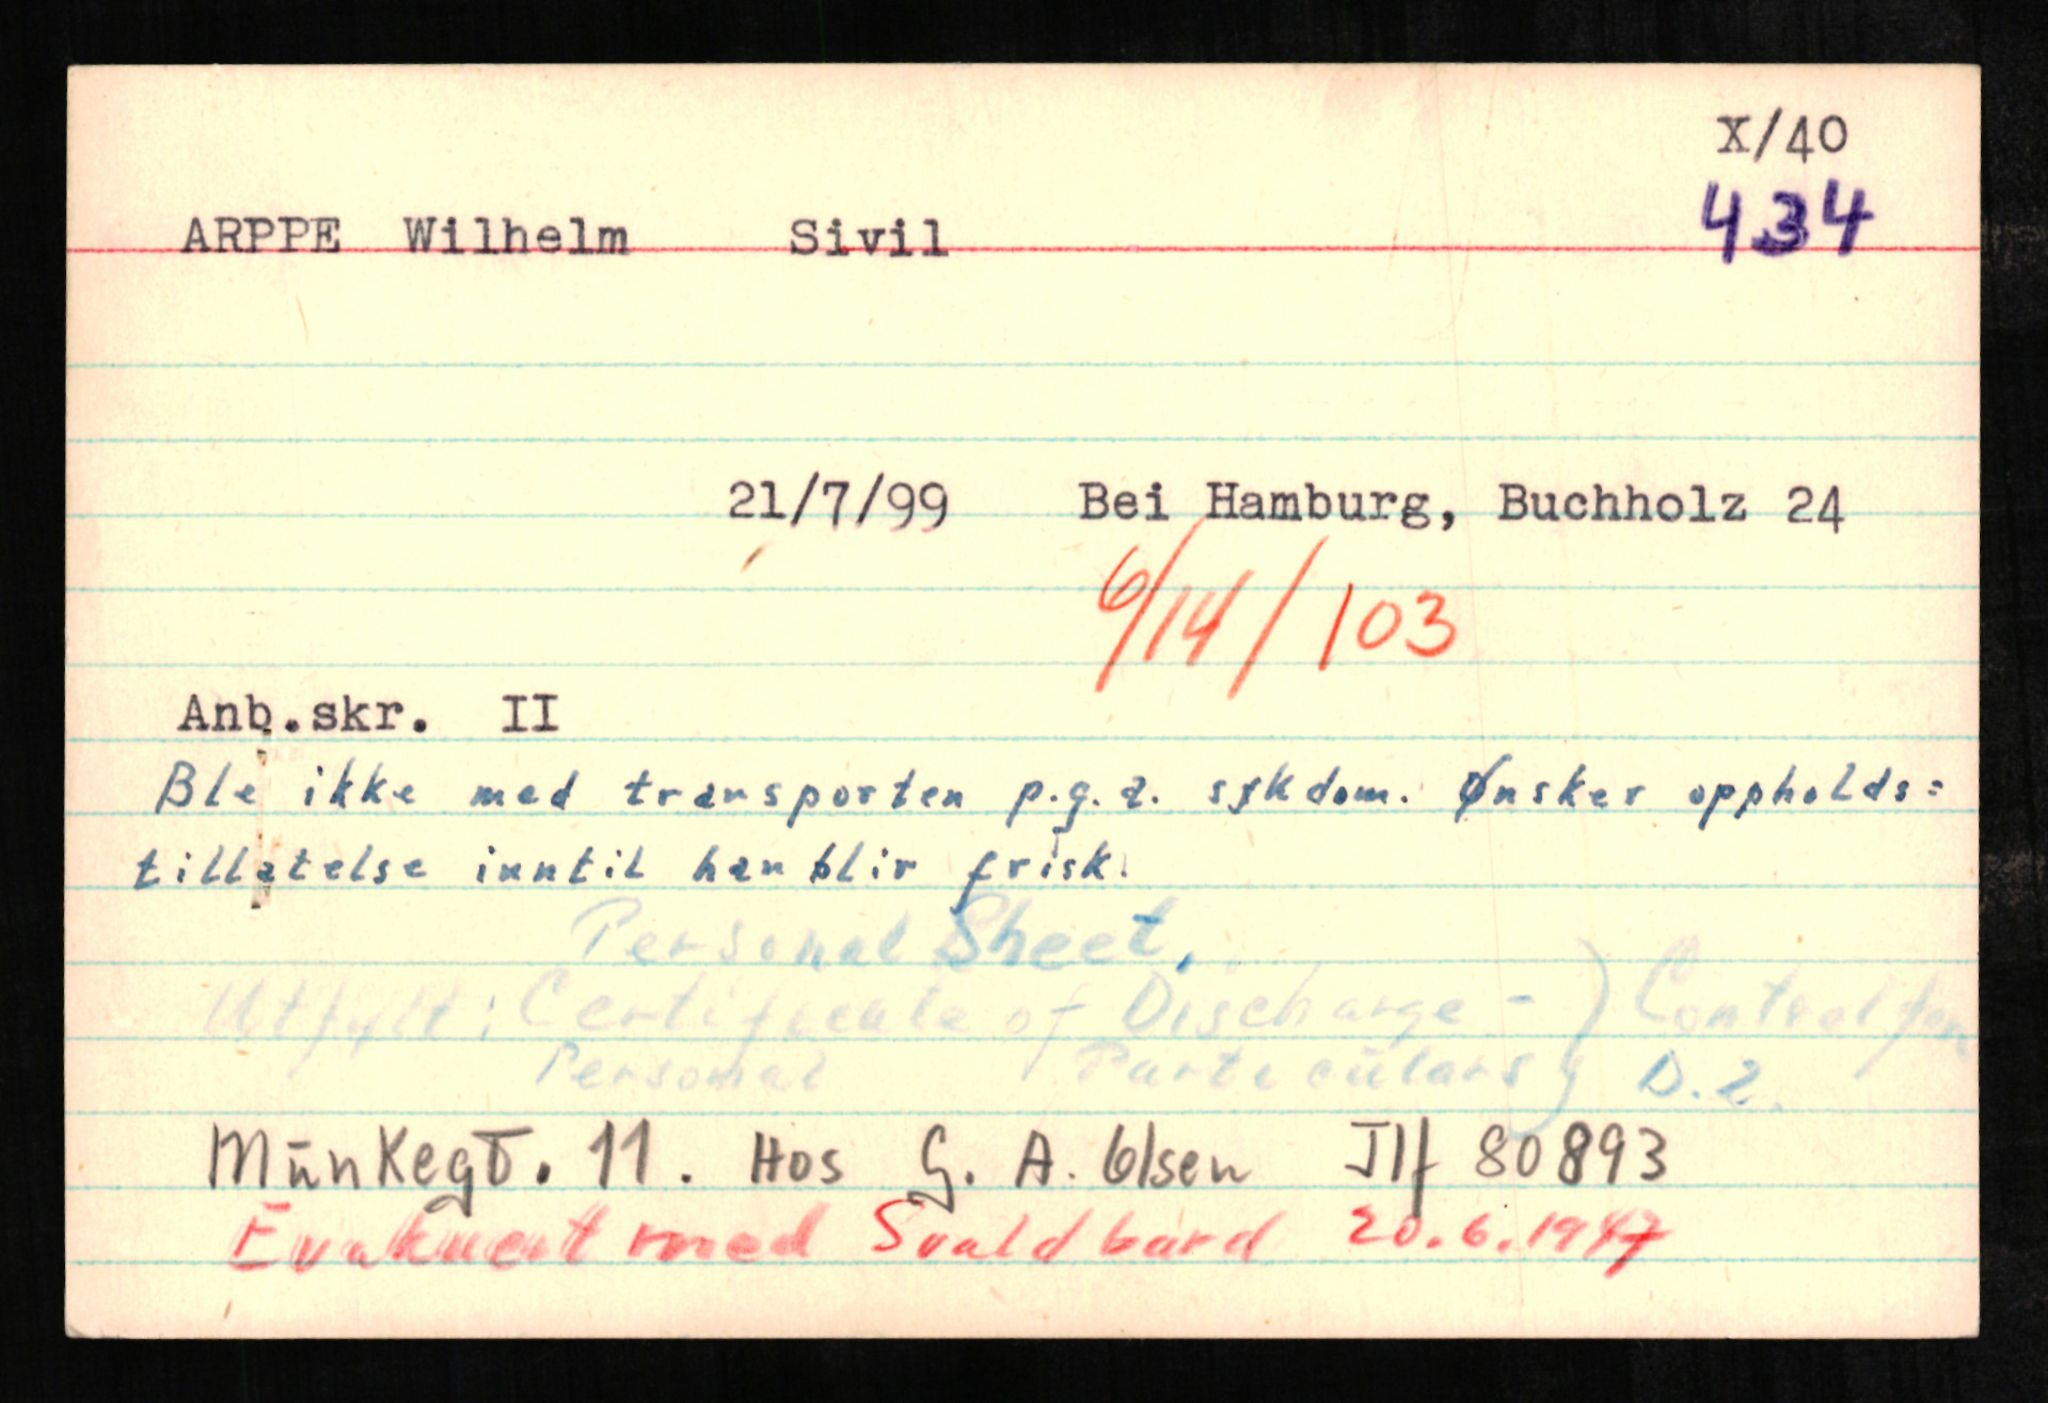 X/40
434
ARPPE Wilhelm Sivil
21/7/99 Bei Hamburg, Buchholz 24
6/14/103
Anb.skr. II
Ble ikke med transporten p.g.a. sykdom. Ønsker oppholds=
tillatelse inntil han blir frisk.
Personal Sheet.
Utfyllt: Certificate of Discharge - } Control form
Personal Particulars } D.2.
Munkegt. 11. Hos G. A. Olsen Tlf 80893
Evakuert med Svaldbard 20.6.1947